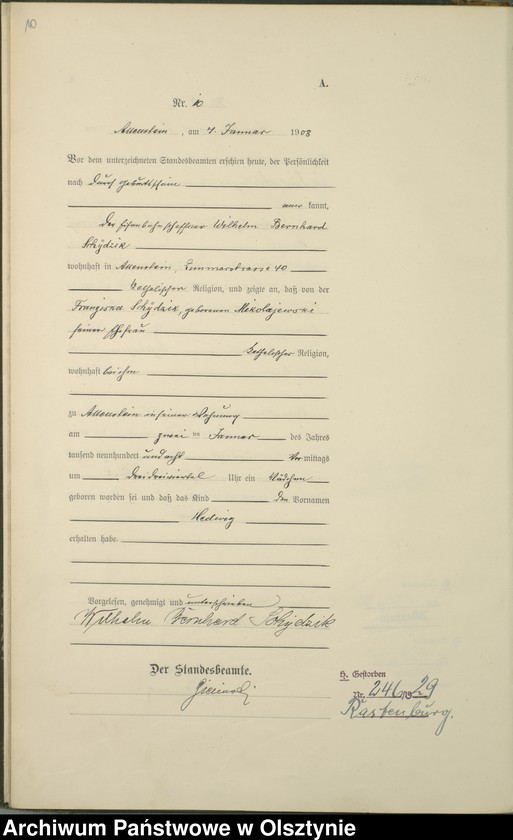 10
A.
Nr. 10
Allenstein, am 7. Januar 1908
Vor dem unterzeichneten Standesbeamten erschien heute, der Persönlichkeit
nach durch Geburtsschein
aner kannt,
der Eisenbahnschaffner Wilhelm Bernhard
Schydzik
wohnhaft in Allenstein, 40
katholischer Religion, und zeigte an, daß von der
Franziska Schydzik, geborenen Mikolajewski
seiner Ehefrau
katholischer Religion,
wohnhaft bei ihm
zu Allenstein in seiner Wohnung
am zwei ten Januar des Jahres
tausend neunhundert und acht Vor mittags
um dreidreiviertel Uhr ein Mädchen
geboren worden sei und daß das Kind den Vornamen
Hedwig
erhalten habe.
Vorgelesen, genehmigt und unterschrieben
Wilhelm Bernhard Schydzik
Der Standesbeamte.
H. Gestorben
Nr. 246/1929
Rastenburg.
Archiwum Państwowe w Olsztynie